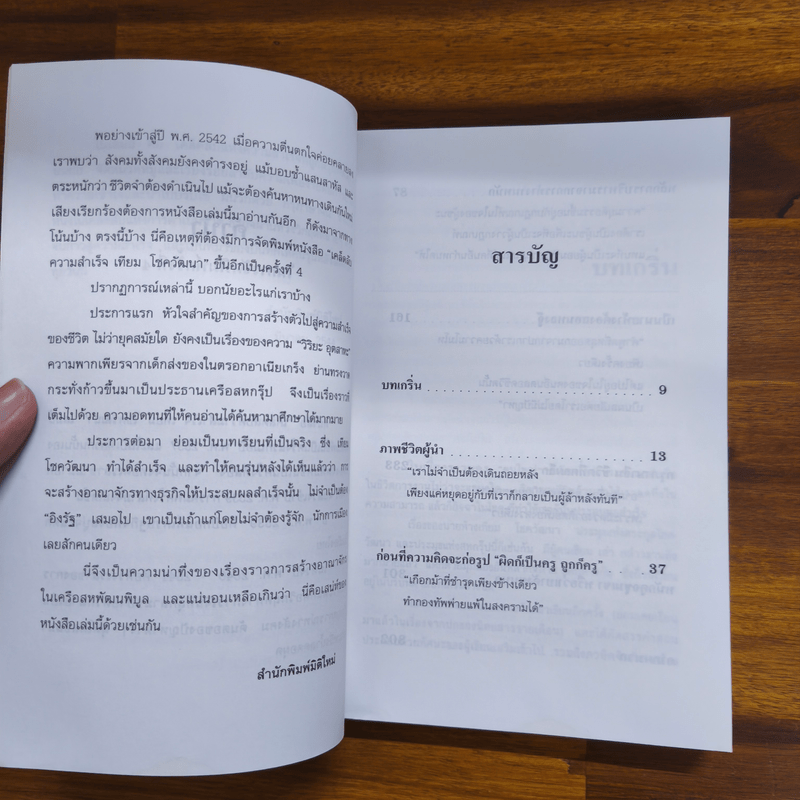 พอย่างเข้าสู่ปี พ.ศ. 2542 เมื่อความตื่นตกใจค่อยคลายลง
เราพบว่า สังคมทั้งสังคมยังคงดำรงอยู่ แม้บอบช้ำแสนสาหัส และ
ตระหนักว่า ชีวิตจำต้องดำเนินไป แม้จะต้องค้นหาหนทางเดินกันใหม่
เสียงเรียกร้องต้องการหนังสือเล่มนี้มาอ่านกันอีก ก็ดังมาจากทาง
โน้นบ้าง ตรงนี้บ้าง นี่คือเหตุที่ต้องมีการจัดพิมพ์หนังสือ "เคล็ดลับ
ความสำเร็จ เทียม โชควัฒนา" ขึ้นอีกเป็นครั้งที่ 4
ปรากฏการณ์เหล่านี้ บอกนัยอะไรแก่เราบ้าง
ประการแรก หัวใจสำคัญของการสร้างตัวไปสู่ความสำเร็จ
ของชีวิต ไม่ว่ายุคสมัยใด ยังคงเป็นเรื่องของความ "วิริยะ อุตสาหะ"
ความพากเพียรจากเด็กส่งของในตรอกอาเนียเกร็ง ย่านทรงวาด
กระทั่งก้าวขึ้นมาเป็นประธานเครือสหกรุ๊ป จึงเป็นเรื่องราวที่
เต็มไปด้วย ความอดทนที่ให้คนอ่านได้ค้นหามาศึกษาได้มากมาย
ประการต่อมา ย่อมเป็นบทเรียนที่เป็นจริง ซึ่ง เทียม
โชควัฒนา ทำได้สำเร็จ และทำให้คนรุ่นหลังได้เห็นแล้วว่า การ
จะสร้างอาณาจักรทางธุรกิจให้ประสบผลสำเร็จนั้น ไม่จำเป็นต้อง
"อิงรัฐ" เสมอไป เขาเป็นเถ้าแก่โดยไม่จำต้องรู้จัก นักการเมือง
เลยสักคนเดียว
นี่จึงเป็นความน่าทึ่งของเรื่องราวการสร้างอาณาจักร
ในเครือสหพัฒนพิบูล และแน่นอนเหลือเกินว่า นี่คือเสน่ห์ของ
หนังสือเล่มนี้ด้วยเช่นกัน
สำนักพิมพ์มิติใหม่
สารบัญ
บทเกริ่น 9
ภาพชีวิตผู้นำ 13
"เราไม่จำเป็นต้องเดินถอยหลัง
เพียงแค่หยุดอยู่กับที่เราก็กลายเป็นผู้ล้าหลังทันที"
ก่อนที่ความคิดจะก่อรูป "ผิดก็เป็นครู ถูกก็ครู" 37
"เกือกม้าที่ชำรุดเพียงข้างเดียว
ทำกองทัพพ่ายแพ้ในสงครามได้"